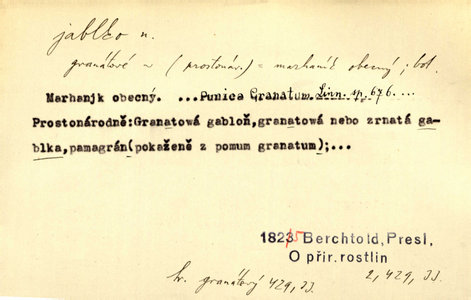 jablko n.
granátové ~ (prostonár.) = marhaník obecný; bot.
Marhanjk obecný. ...Punica Granatum. Linn. sp. 676. ...
Prostonárodně:Granatová gabloň,granatová nebo zrnatá ga-
blka,pamagrán(pokaženě z pomum granatum);...
1823/25 Berchtold, Presl,
O přir. rostlin
2, 429, 33.
hr. granátový 429, 33